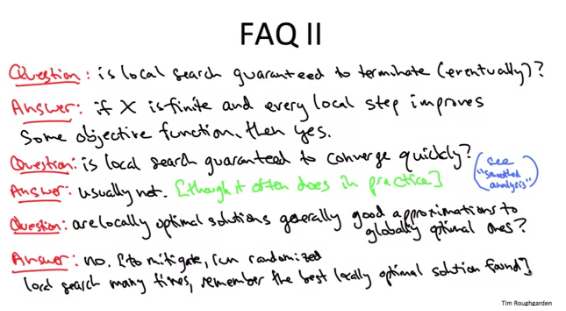 FAQ II
Question: is local search guaranteed to terminate (eventually)?
Answer: if X is finite and every local step improves
some objective function, then yes.
Question: is local search guaranteed to converge quickly?
Answer: usually not. [though it often does in practice]
(see
"smoothed
analysis")
Question: are locally optimal solutions generally good approximations to
globally optimal ones?
Answer: no. [to mitigate, run randomized
local search many times, remember the best locally optimal solution found]
Tim Roughgarden